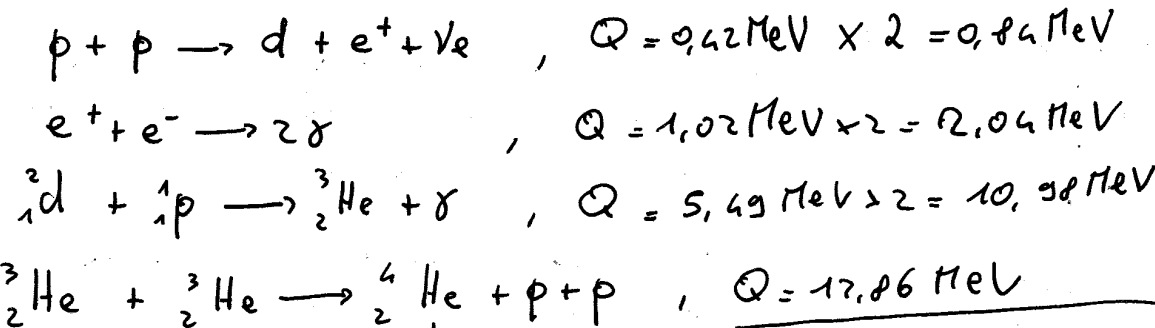 p + p → d + e⁺ + νe , Q = 0,42 MeV × 2 = 0,84 MeV
e⁺ + e⁻ → 2γ , Q = 1,02 MeV × 2 = 2,04 MeV
²₁d + ¹₁p → ³₂He + γ , Q = 5,49 MeV × 2 = 10,98 MeV
³₂He + ³₂He → ⁴₂He + p + p , Q = 12,86 MeV